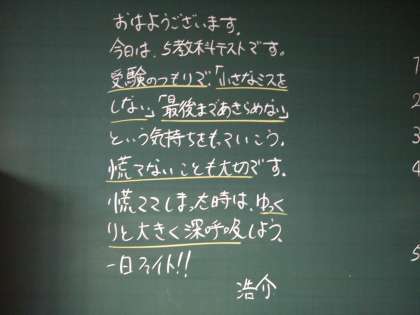 おはようございます。
今日は、5教科テストです。
受験のつもりで、「小さなミスを
しない」「最後まであきらめない」
という気持ちをもっていこう。
慌てないことも大切です。
慌ててしまった時は、ゆっく
りと大きく深呼吸しよう。
一日ファイト!!
浩介
1
2
3
4
5